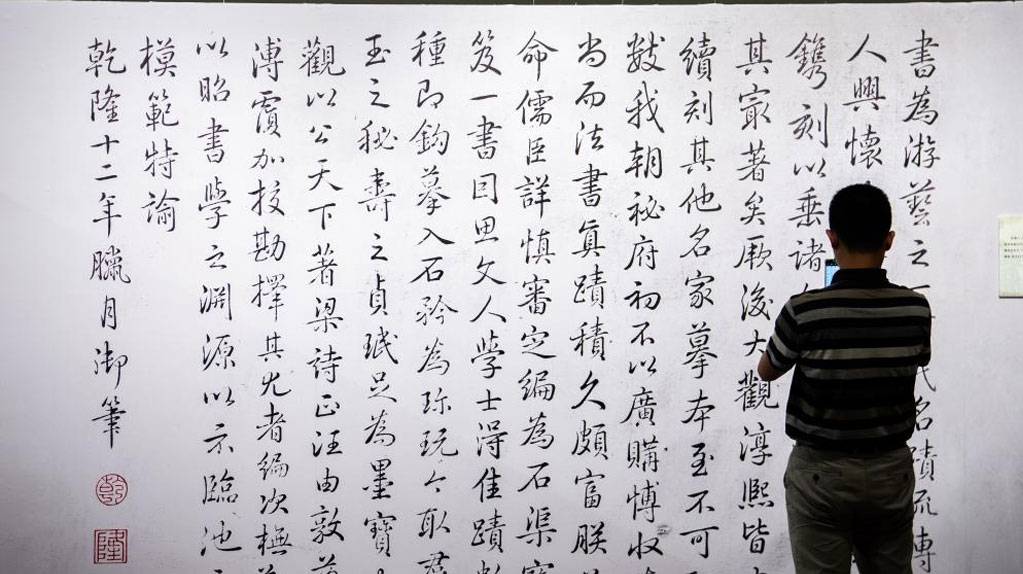 書為游藝之名蹟流傳
人興懷
鐫刻以垂諸
其最著矣厥後大觀淳熙皆
續刻其他名家摹本至不可
數我朝祕府初不以廣購博收
尚而法書真蹟積久頗富朕
命儒臣詳慎審定編為石渠
笈一書因思文人學士得佳蹟數
種即鈎摹入石矜為珍玩今取
玉之秘壽之貞珉足為墨寶
觀以公天下著梁詩正汪由敦
溥覆加校勘擇其尤者編次橅
以昭書學之淵源以示臨池
模範特諭
乾隆十二年臘月御筆
乾
隆